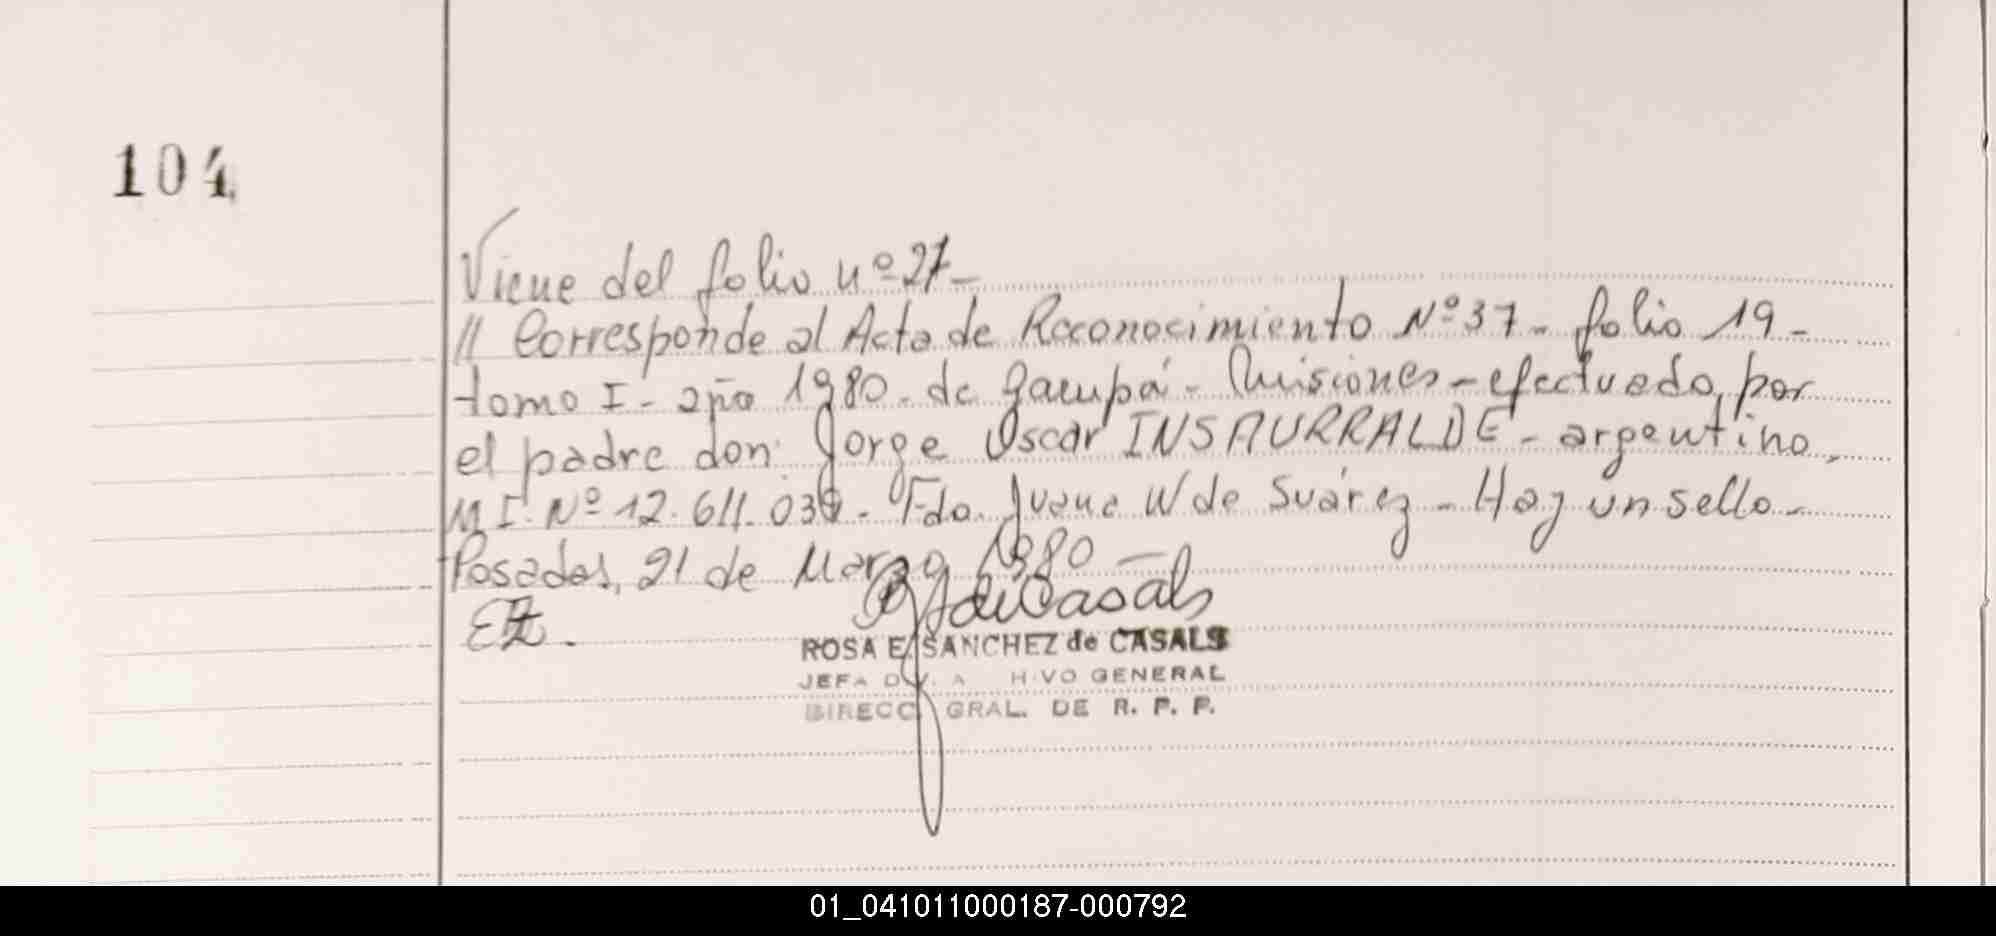 104
Viene del folio nº 27-
// Corresponde al Acta de Reconocimiento Nº 37- folio 19-
tomo I- año 1980- de Garupá- Misiones- efectuado, por
el padre don Jorge Oscar INSAURRALDE- argentino,
M.I. Nº 12.611.03 - Fdo. Juana W de Suárez- Hay un sello-
Posadas, 21 de Marzo 1980-
de Casals
ROSA E. SANCHEZ de CASALS
JEFA GENERAL
DIRECC. GRAL. DE R. P. P.
01_041011000187-000792